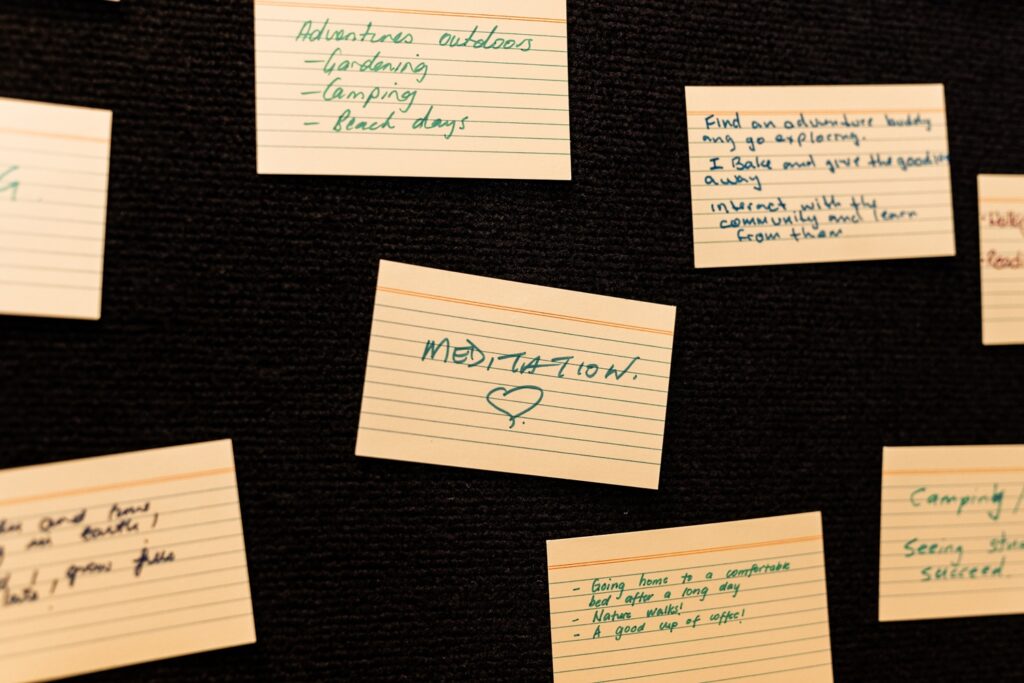 Adventures outdoors
- Gardening
- Camping
- Beach days
Find an adventure buddy
ang go exploring.
I Bake and give the goodies
away
interact with the
community and learn
from them
- Reading
MEDITATION.
and
in earth!
grow
- Going home to a comfortable
bed after a long day
- Nature walks!
- A good cup of coffee!
Camping /
Seeing
succeed.